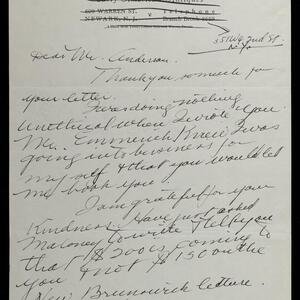 609 WARREN ST.
NEWARK, N. J.
351 W 42nd St
N.Y.
Dear Mr. Anderson.
Thank you so much for
your letter.
I was doing nothing
unethical when I wrote you.
Mr. Emmerich knew I was
going into business for
my self & that you would let
me book you.
I am grateful for your
Kindness. Have just asked
Maloney to write & tell you
that $200 is coming to
you & not $150 on the
New Brunswick lecture.